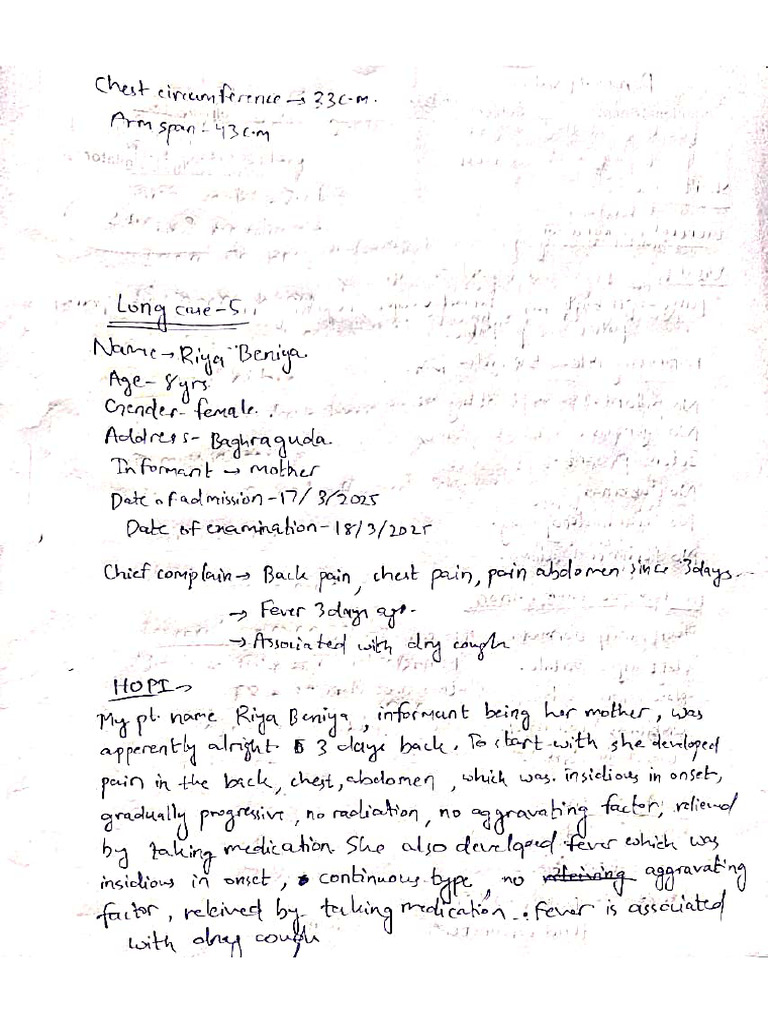 Chest circumference → 33c.m.
Arm span - 43c.m
Long case - 5
Name → Riya Beniya.
Age - 8yrs
Gender - female.
Address - Baghraguda.
Informant → mother
Date of admission - 17/3/2025
Date of examination - 18/3/2025
Chief complain → Back pain, chest pain, pain abdomen since 3days.
→ Fever 3days ago.
→ Associated with dry cough
HOPI →
My pt. name Riya Beniya, informant being her mother, was
apperently alright 3 days back. To start with she developed
pain in the back, chest, abdomen, which was insidious in onset,
gradually progressive, no radiation, no aggravating factor, relieved
by taking medication. She also developed fever which was
insidious in onset, continuous type, no aggravating
factor, releived by taking medication. Fever is associated
with dry cough